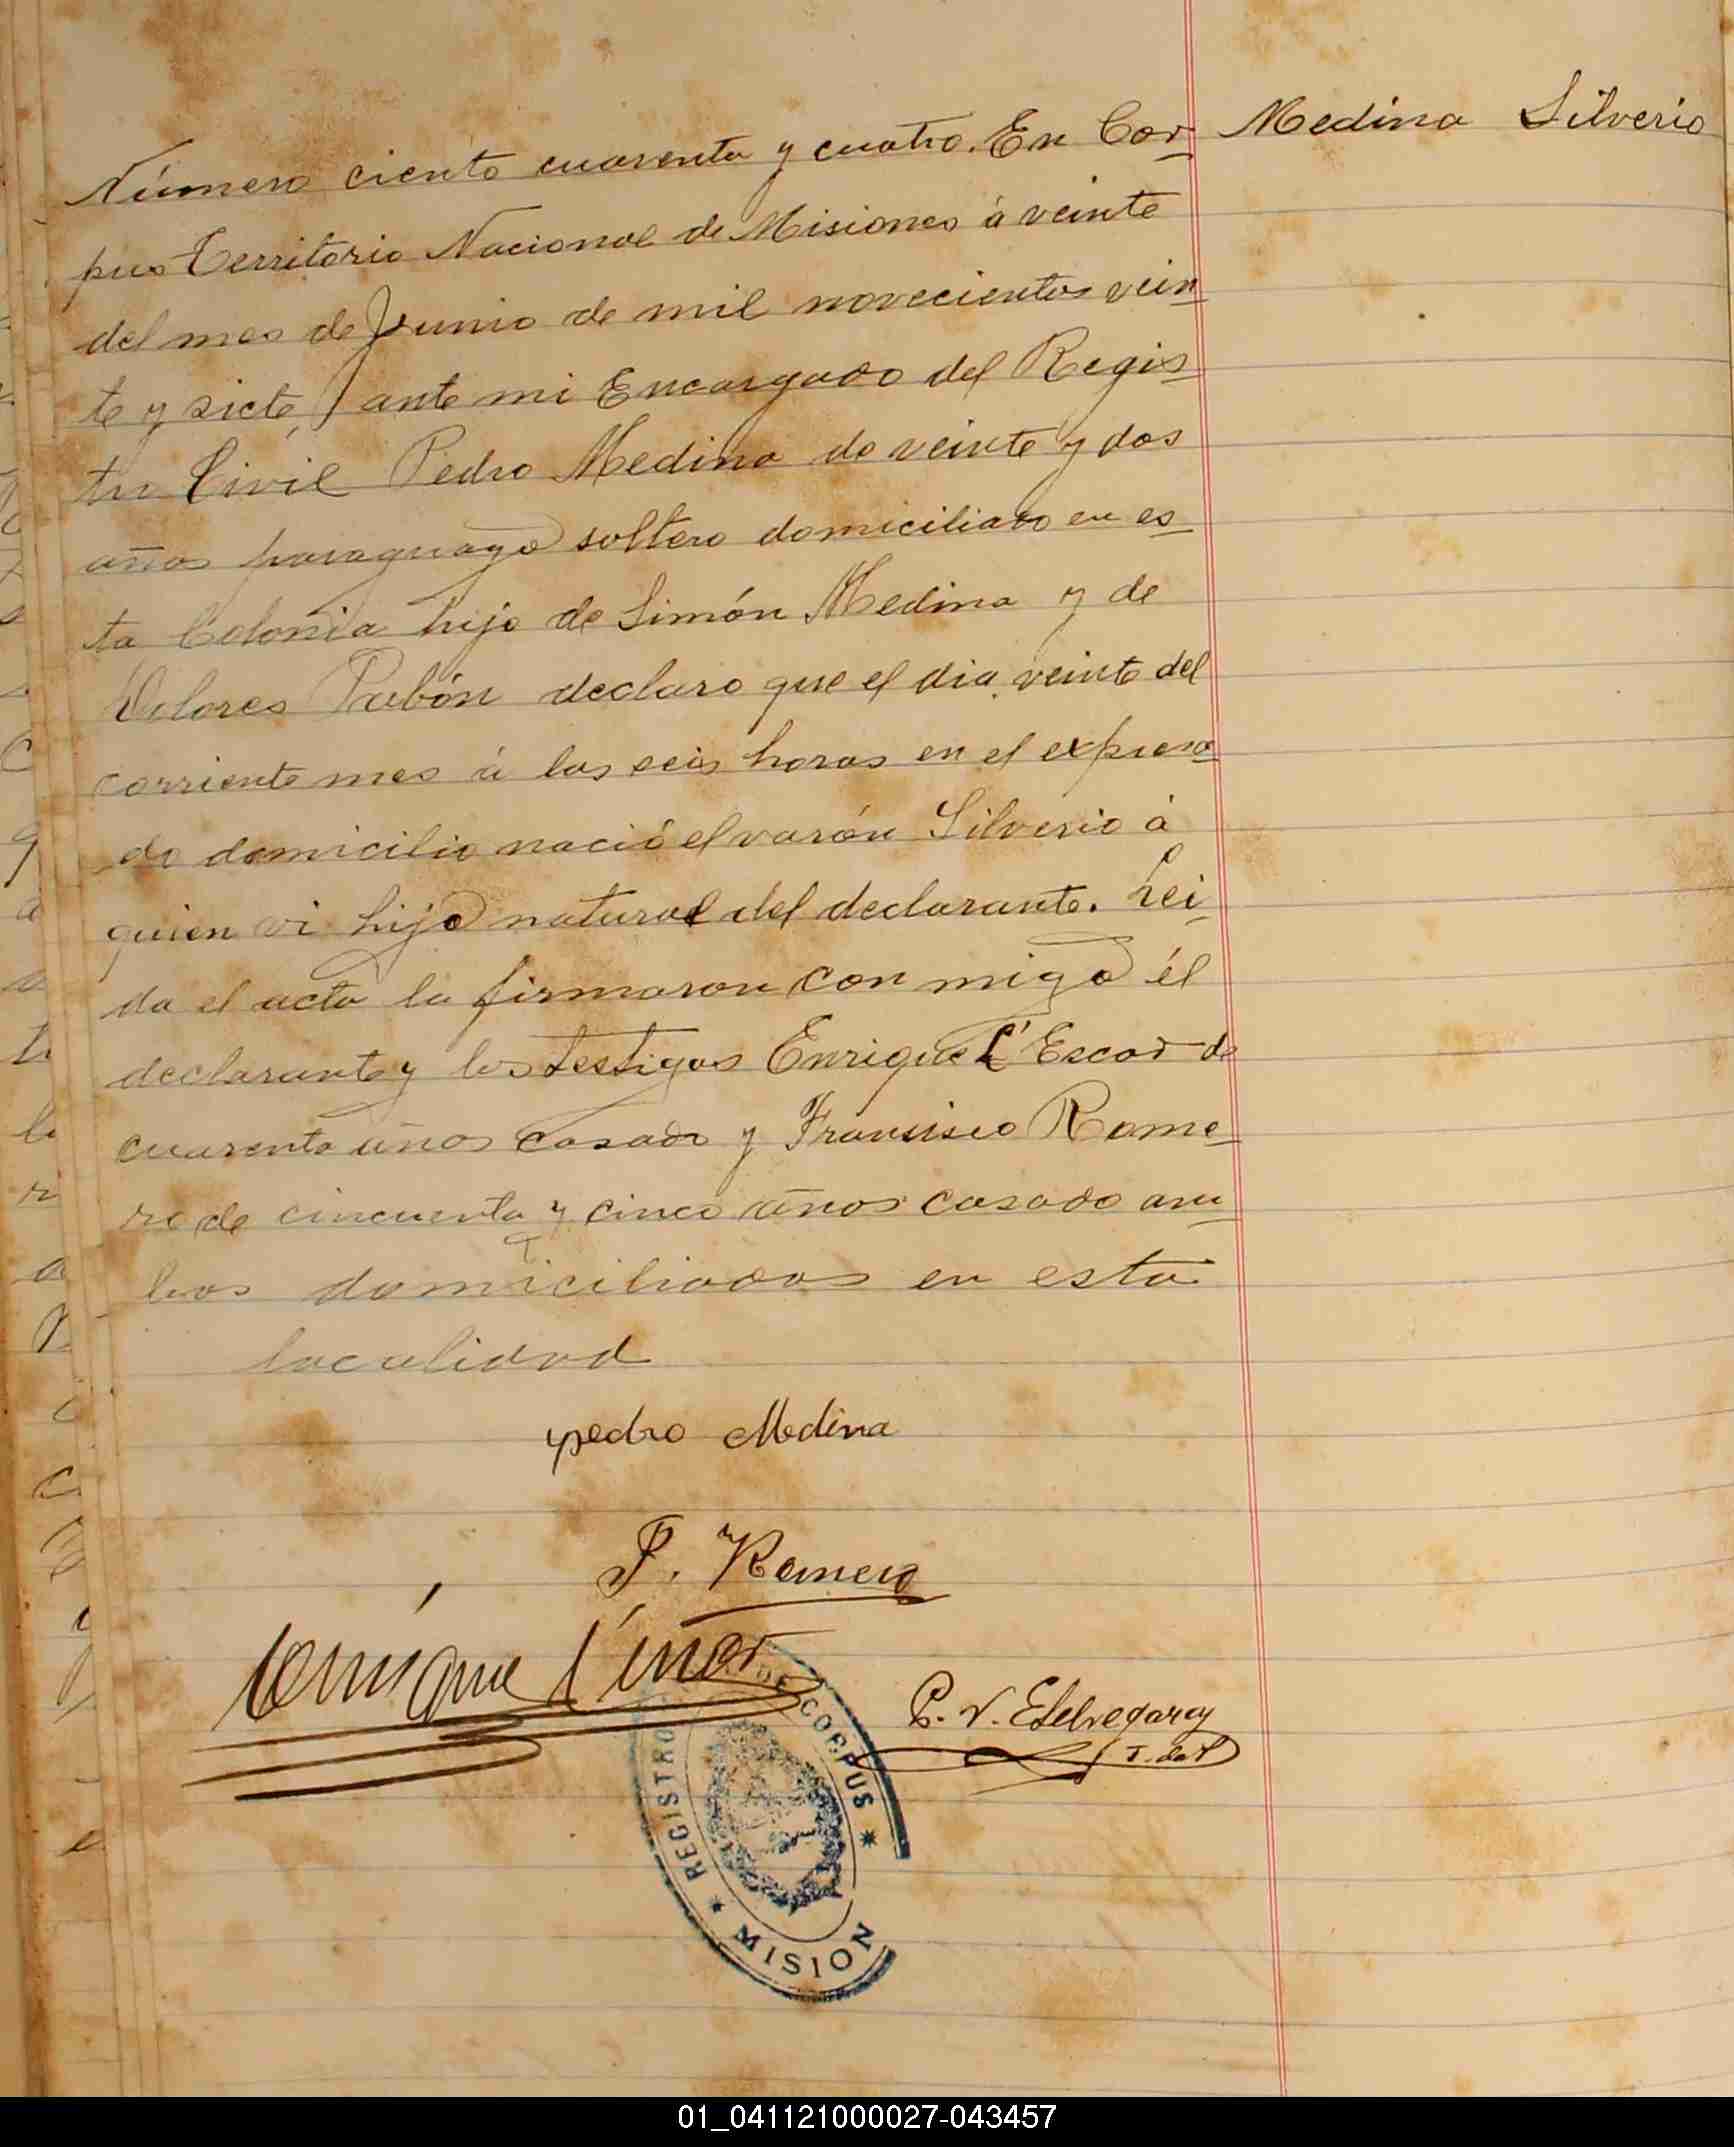 Medina Silverio
Número ciento cuarenta y cuatro. En Cor
pus Territorio Nacional de Misiones á veinte
del mes de Junio de mil novecientos vein
te y siete, ante mi Encargado del Regis
tro Civil Pedro Medina de veinte y dos
años paraguayo soltero domiciliado en es
ta Colonia hijo de Simón Medina y de
Dolores Pabón declaro que el dia veinte del
corriente mes á las seis horas en el expresa
do domicilio nació el varón Silverio á
quien vi hijo natural del declarante. Lei
da el acta la firmaron con migo él
declarante y los testigos Enrique L' Escor de
cuarenta años casado y Fransisco Rome
ro de cincuenta y cinco años casado am
bos domiciliados en esta
localidad
pedro Medina
F. Romero
Enrique
P. V. Etchegaray
REGISTRO DE CORPUS
MISION
01_041121000027-043457